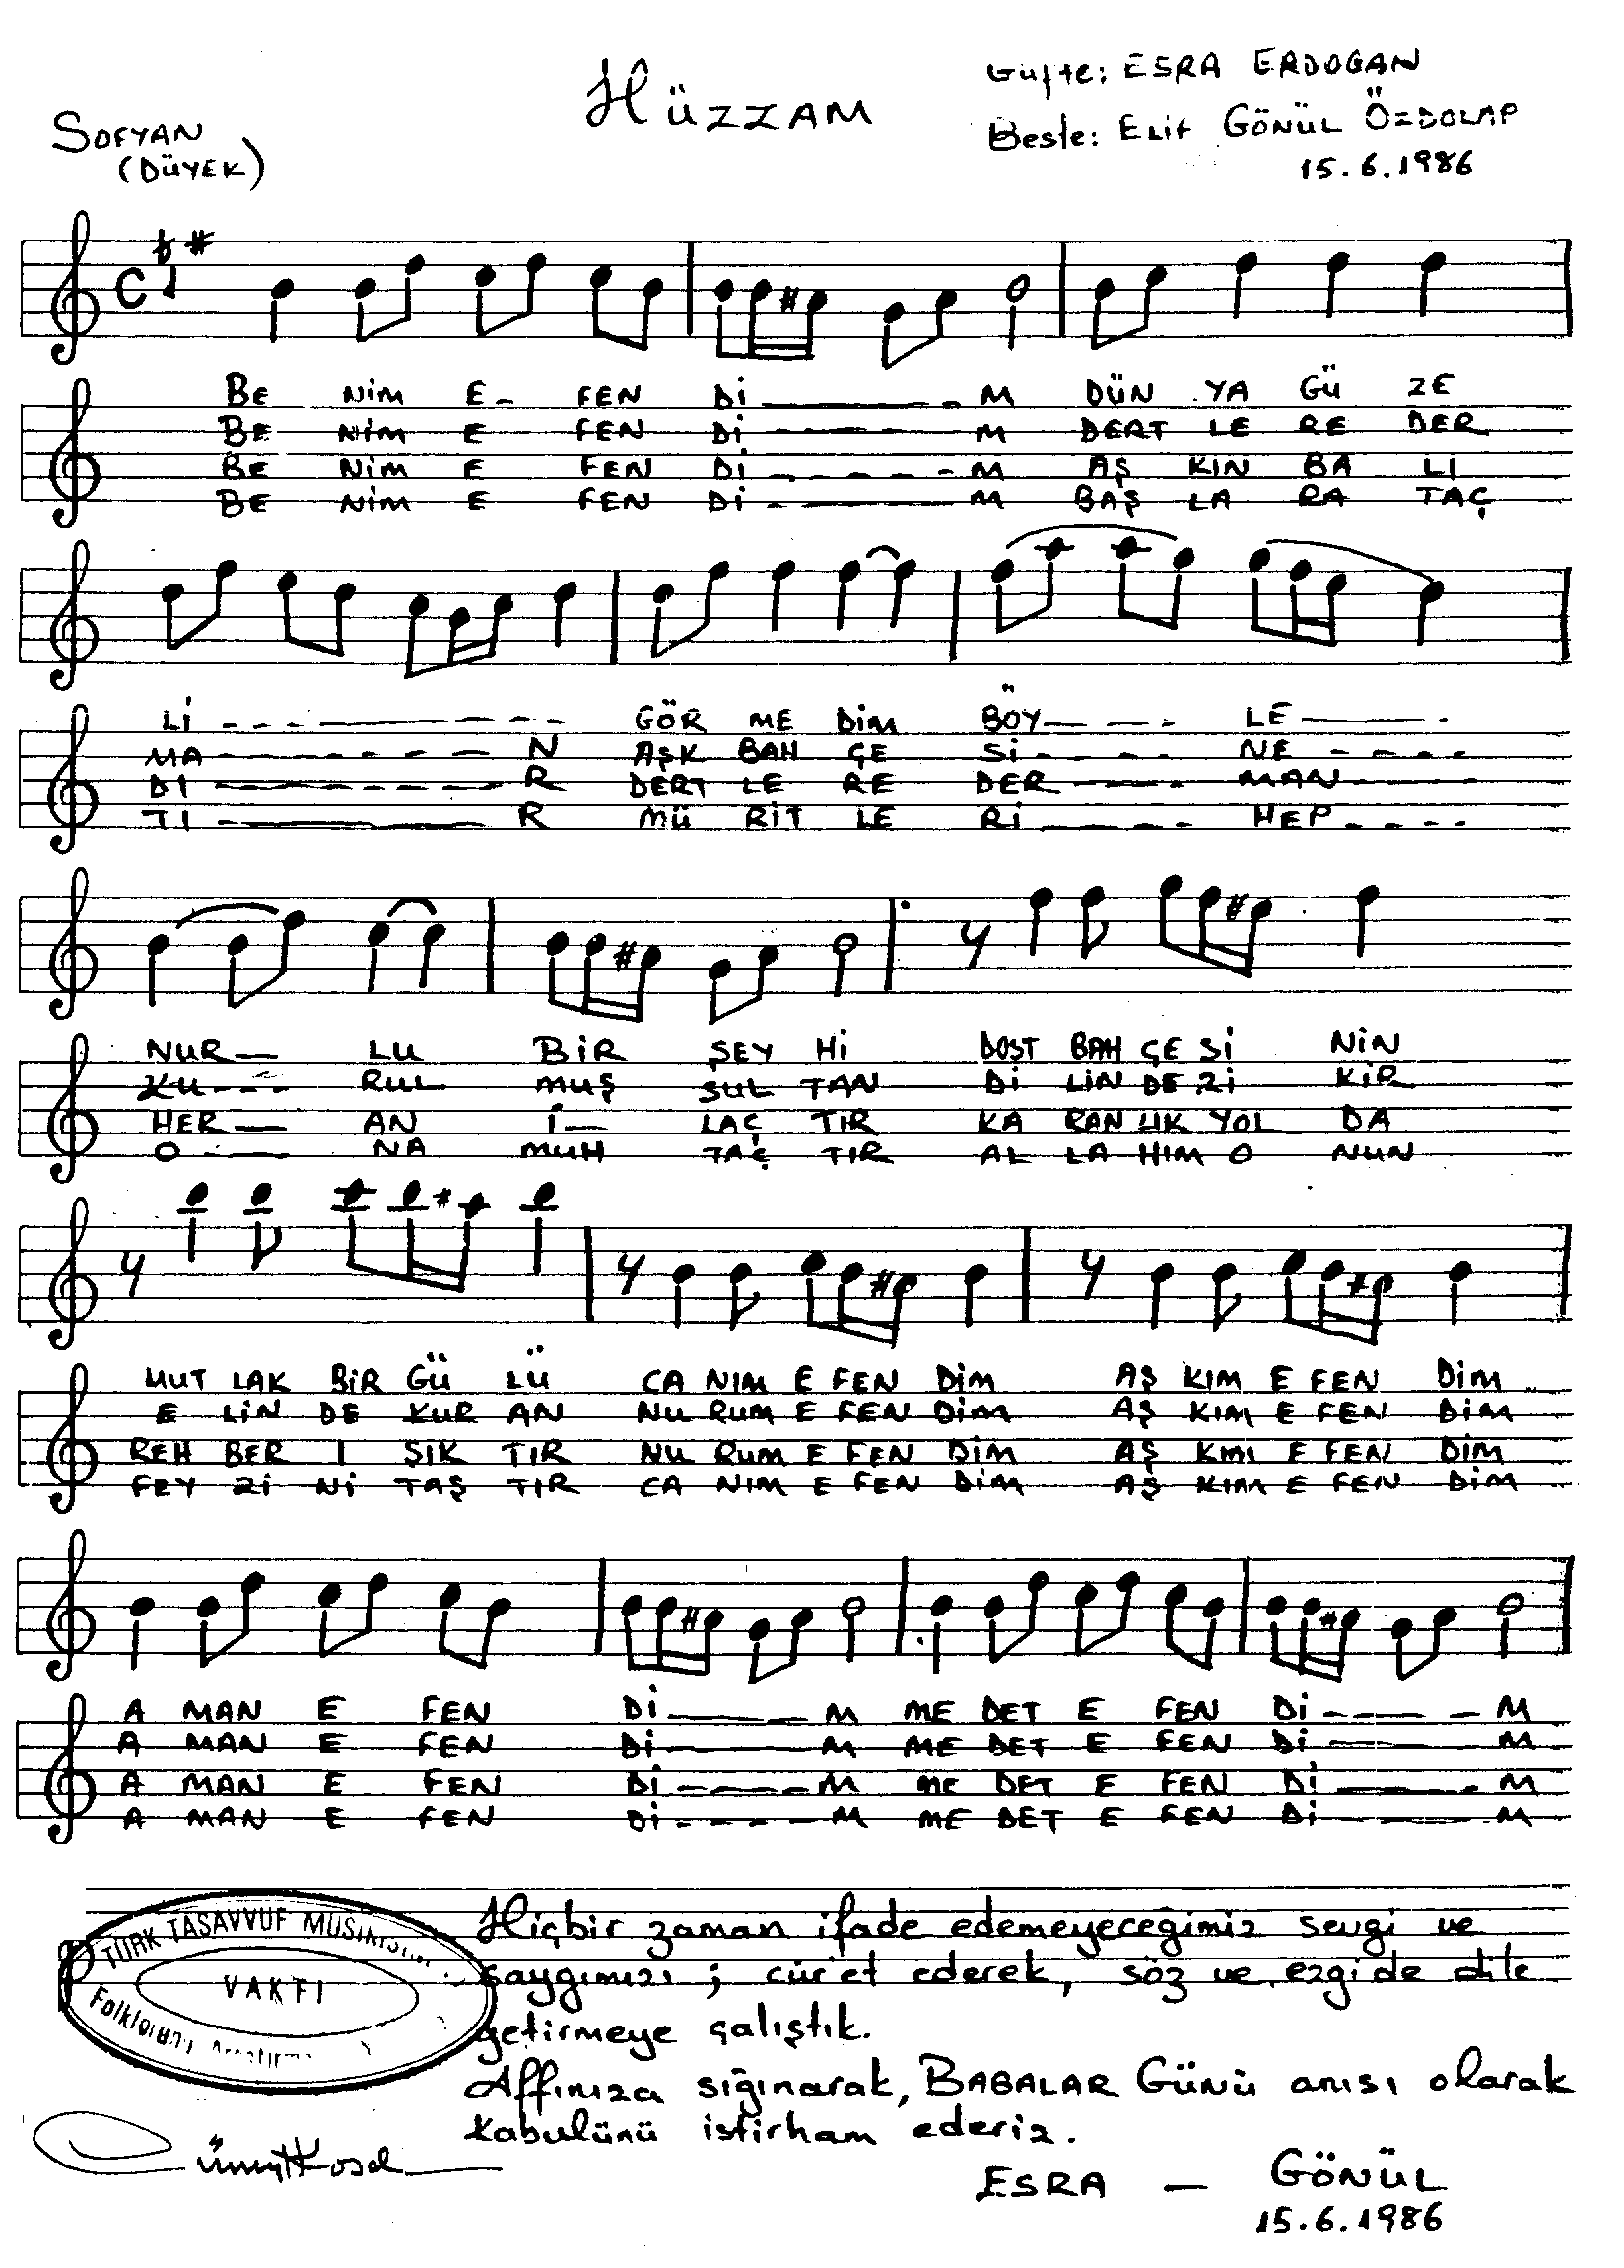 HÜZZAM
Güfte: ESRA ERDOGAN
SOFYAN
(DÜYEK)
Beste: ELİF GÖNÜL ÖZDOLAP
15.6.1986
BE NİM E- FEN Dİ M DÜN YA GÜ ZE
BE NİM E FEN Dİ M DERT LE RE DER
BE NİM E FEN Dİ M AŞ KIN BA LI
BE NİM E FEN Dİ M BAŞ LA RA TAÇ
Lİ GÖR ME DİM BÖY LE
MA N AŞK BAH ÇE Sİ NE
DI R DERT LE RE DER MAN
TI R MÜ RİT LE Rİ HEP
NUR LU BİR ŞEY Hİ DOST BAH ÇE Sİ NİN
KU RUL MUŞ SUL TAN Dİ LİN DE Zİ KİR
HER AN İ LAÇ TIR KA RAN LIK YOL DA
O NA MUH TAÇ TIR AL LA HIM O NUN
MUT LAK BİR GÜ LÜ CA NIM E FEN DİM AŞ KIM E FEN DİM
E LİN DE KUR AN NU RUM E FEN DİM AŞ KIM E FEN DİM
REH BER I ŞIK TIR NU RUM E FEN DİM AŞ KIMI E FEN DİM
FEY Zİ Nİ TAŞ TIR CA NIM E FEN DİM AŞ KIM E FEN DİM
A MAN E FEN Dİ M ME DET E FEN Dİ M
A MAN E FEN Dİ M ME DET E FEN Dİ M
A MAN E FEN Dİ M ME DET E FEN Dİ M
A MAN E FEN Dİ M ME DET E FEN Dİ M
TÜRK TASAVVUF MUSİKİSİNİ
VAKFI
Folklorunu Araştırma
Hiçbir zaman ifade edemeyeceğimiz sevgi ve
saygımızı ; cür'et ederek, söz ve ezgide dile
getirmeye çalıştık.
Affınıza sığınarak, BABALAR GÜNÜ anısı olarak
kabulünü istirham ederiz.
ESRA — GÖNÜL
15.6.1986